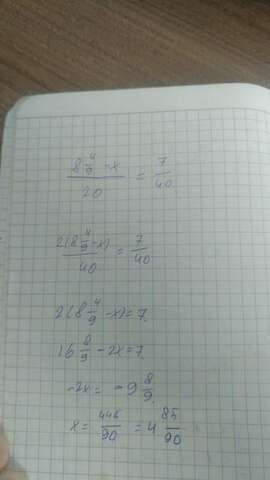 (8 4/9 - x)/20 = 7/40
2(8 4/9 - x)/40 = 7/40
2(8 4/9 - x) = 7.
16 8/9 - 2x = 7.
-2x = -9 8/9.
x = 446/90 = 4 85/90